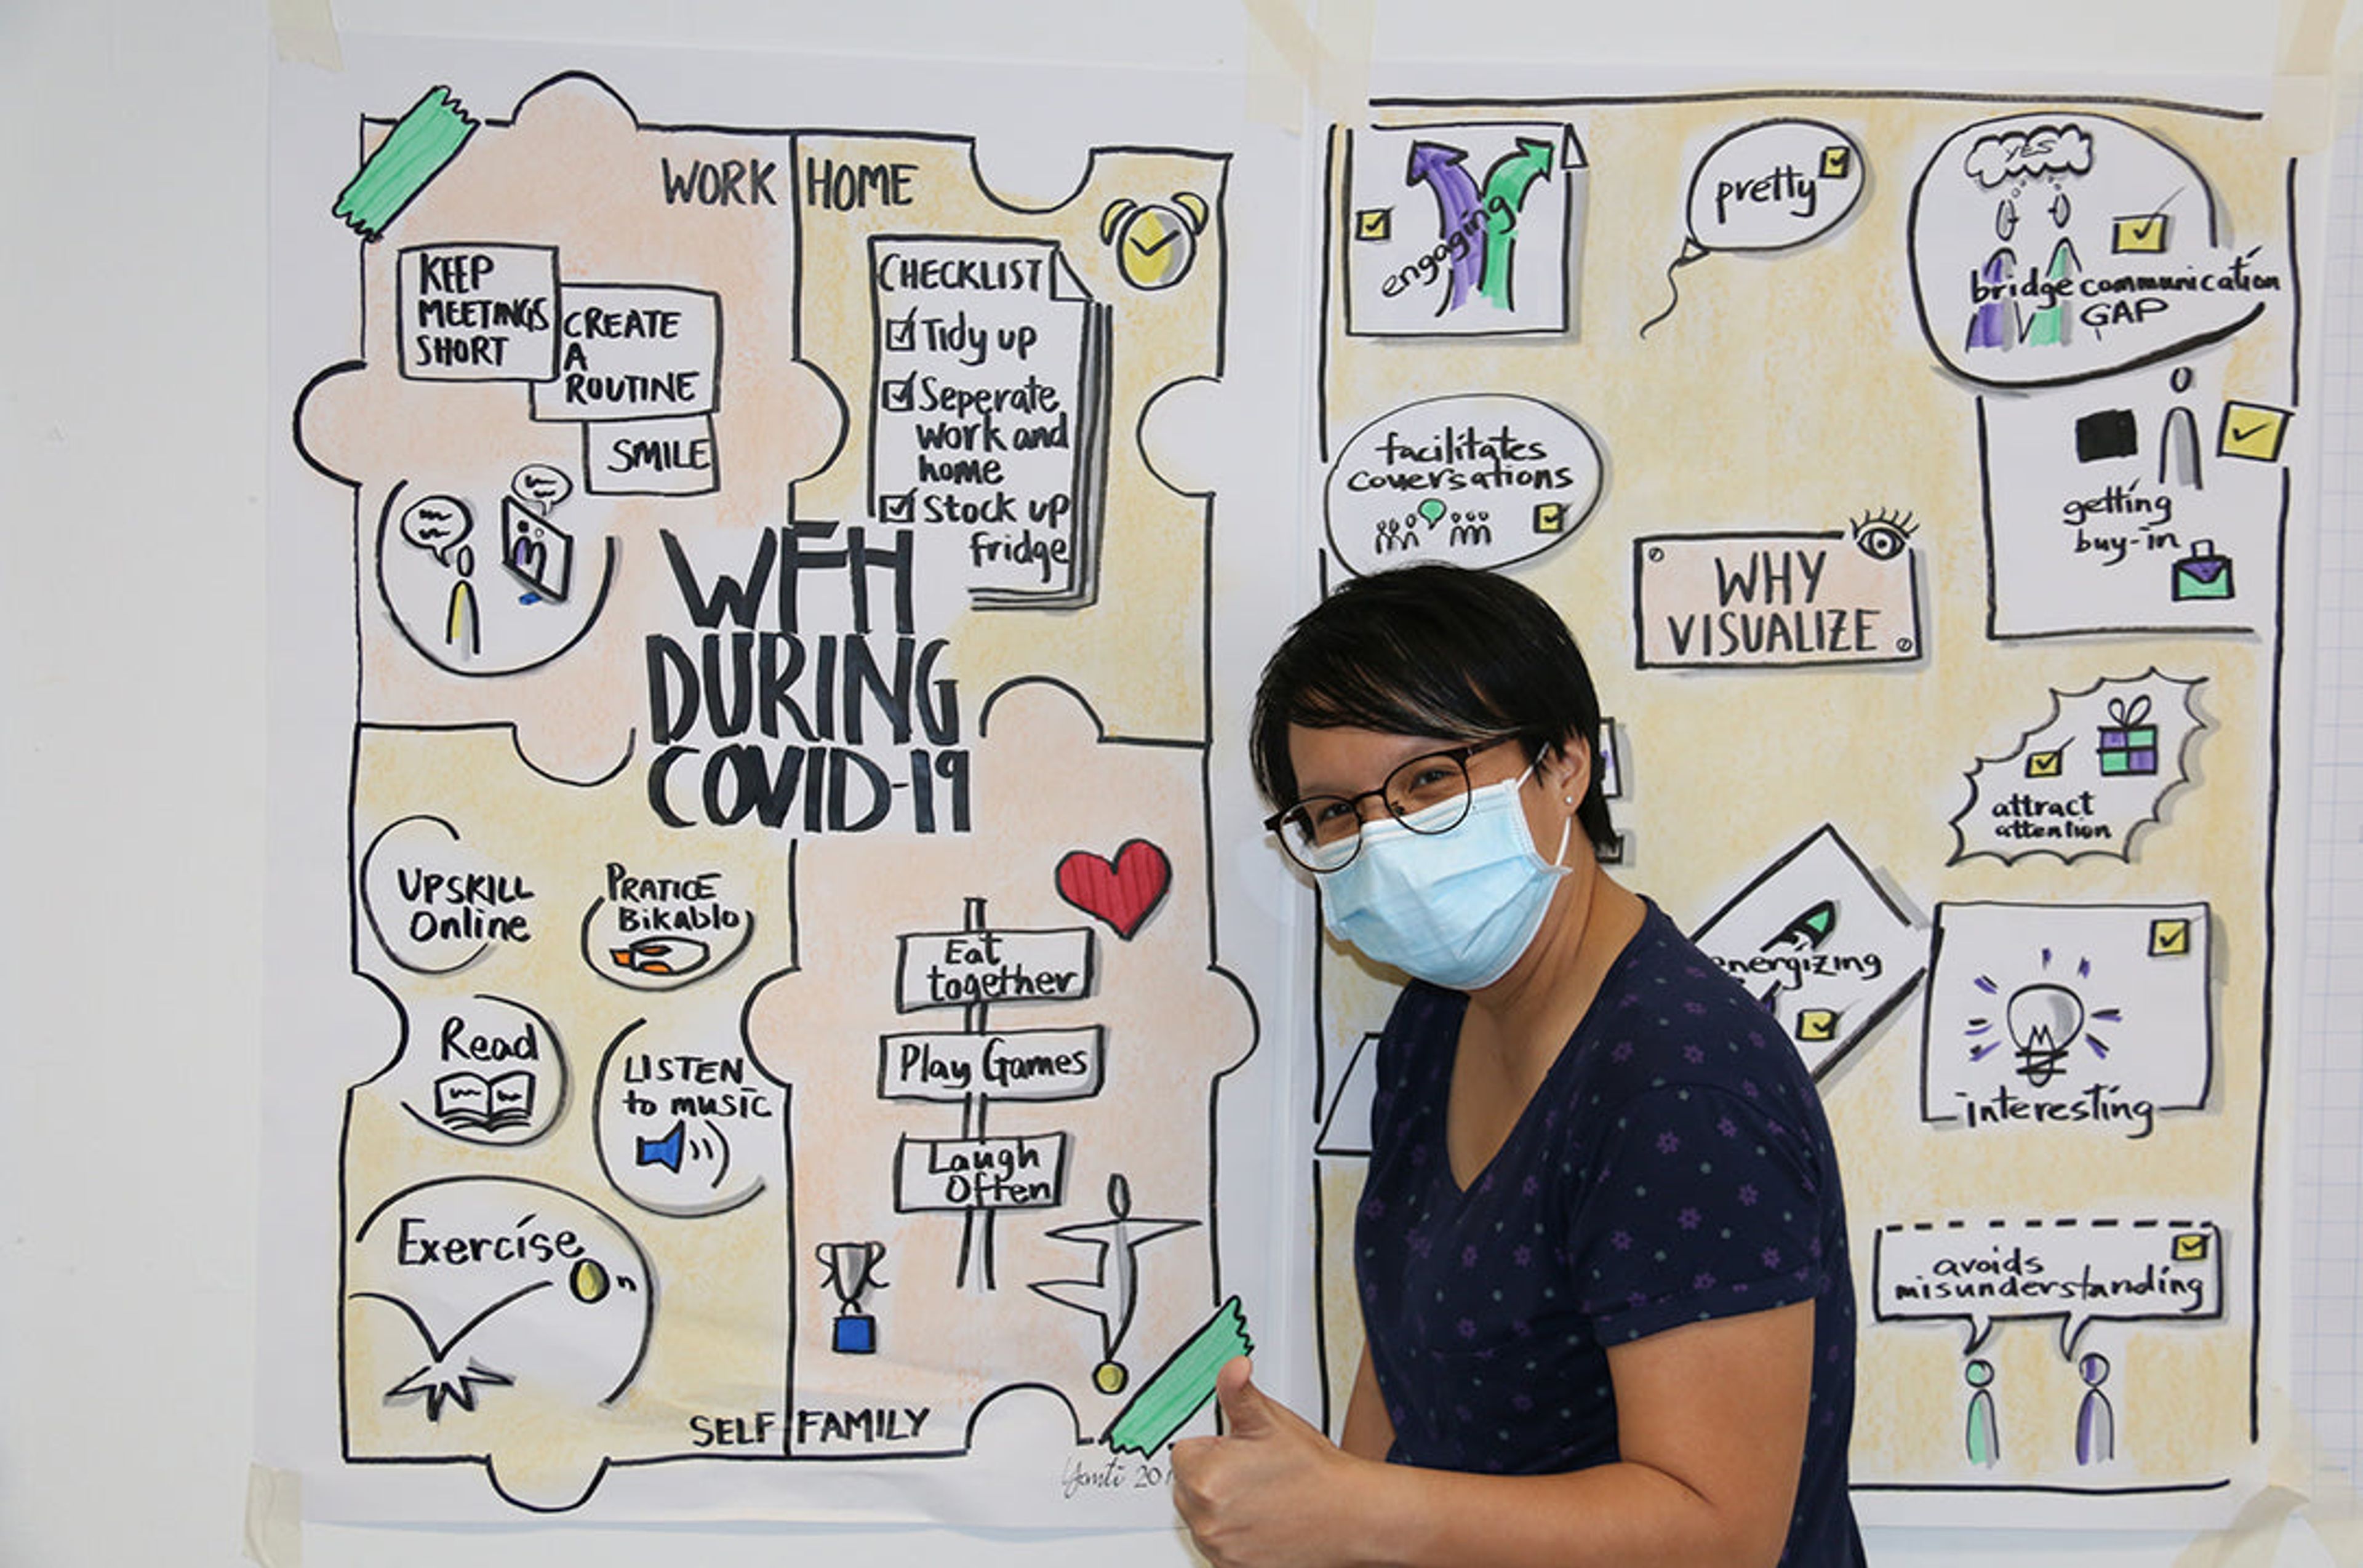 WORK
HOME
KEEP
MEETINGS
SHORT
CREATE
A
ROUTINE
SMILE
CHECKLIST
Tidy up
Seperate
work and
home
Stock up
fridge
WFH
DURING
COVID-19
UPSKILL
Online
PRATICE
Bikablo
Read
LISTEN
to music
Exercise
Eat
together
Play Games
Laugh
Often
SELF
FAMILY
engaging
pretty
YES
bridge communication
GAP
facilitates
conversations
getting
buy-in
WHY
VISUALIZE
attract
attention
energizing
interesting
avoids
misunderstanding